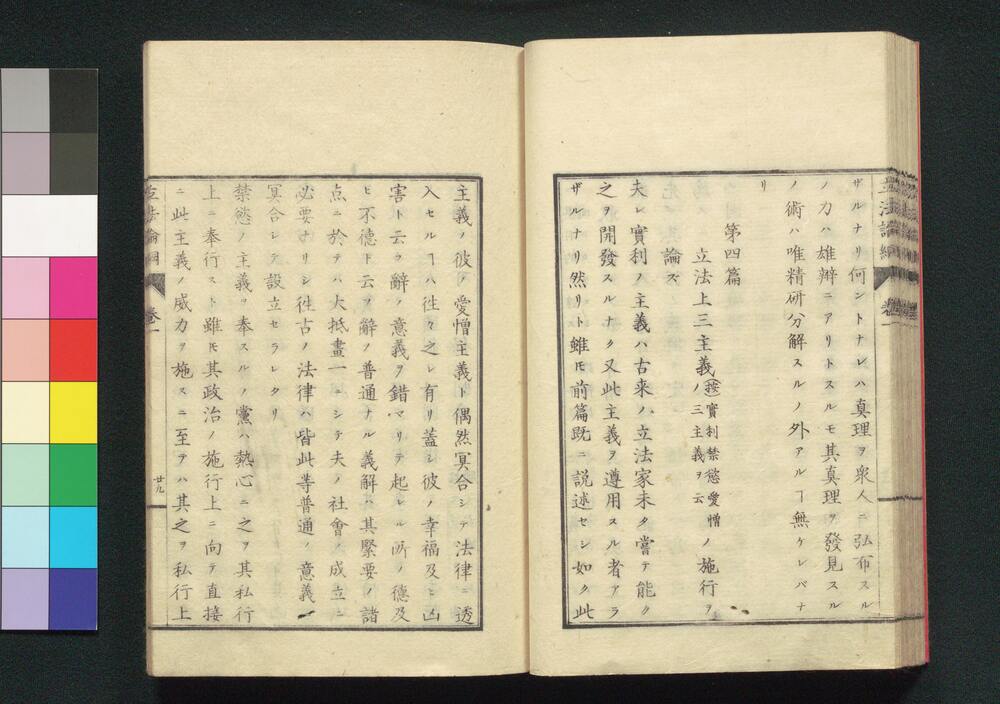 立法論綱
卷一
ザルナリ何ントナレハ真理ヲ衆人ニ弘布スル
ノ力ハ雄辨ニアリトスルモ其真理ヲ發見スル
ノ術ハ唯精研分解スルノ外アルヿ無ケレバナ
リ
第四篇
立法上三主義(按實利禁慾愛憎ノ三主義ヲ云)ノ施行ヲ
論ズ
夫レ實利ノ主義ハ古来ハ立法家未タ嘗テ能ク
之ヲ開發スルナク又此主義ヲ遵用スル者アラ
ザルナリ然リト雖モ前篇既ニ説述セシ如ク此
主義ノ彼ノ愛憎主義ト偶然冥合シテ法律ニ透
入セルヿハ徃々之レ有リ蓋シ彼ノ幸福及ヒ凶
害ト云ウ辭ノ意義ヲ錯マリテ起レル所ノ德及
ヒ不德ト云フ辭ノ普通ナル義解ハ其緊要ノ諸
点ニ於テハ大抵畫一ニシテ夫ノ社會ノ成立ニ
必要ナリシ徃古ノ法律ハ皆此等普通ノ意義ニ
冥合シテ設立セラレタリ
禁慾ノ主義ヲ奉スルノ黨ハ熱心ニ之ヲ其私行
上ニ奉行スト雖モ其政治ノ施行上ニ向テ直接
ニ此主義ノ威力ヲ施スニ至テハ其之ヲ私行上
立法論綱
卷一
廿九